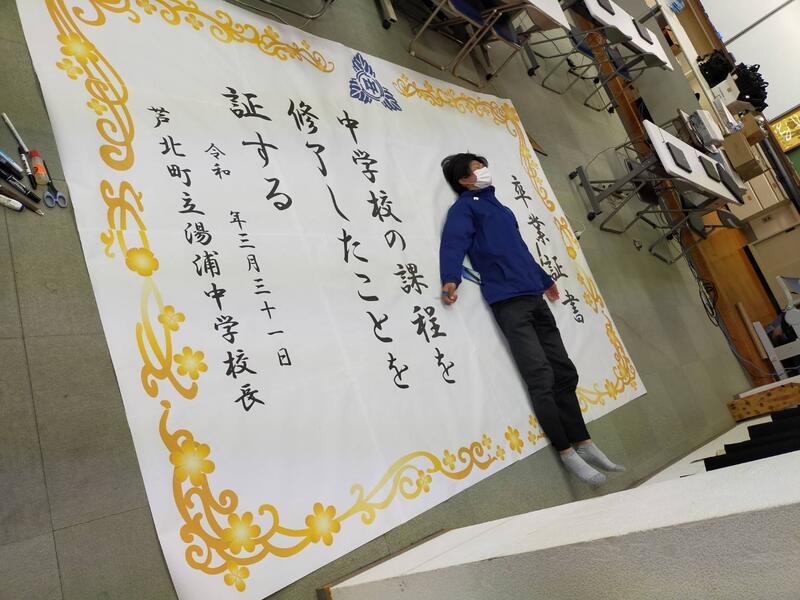 卒業証書
中学校の課程を
修了したことを
証する
令和　年三月三十一日
芦北町立湯浦中学校長
中